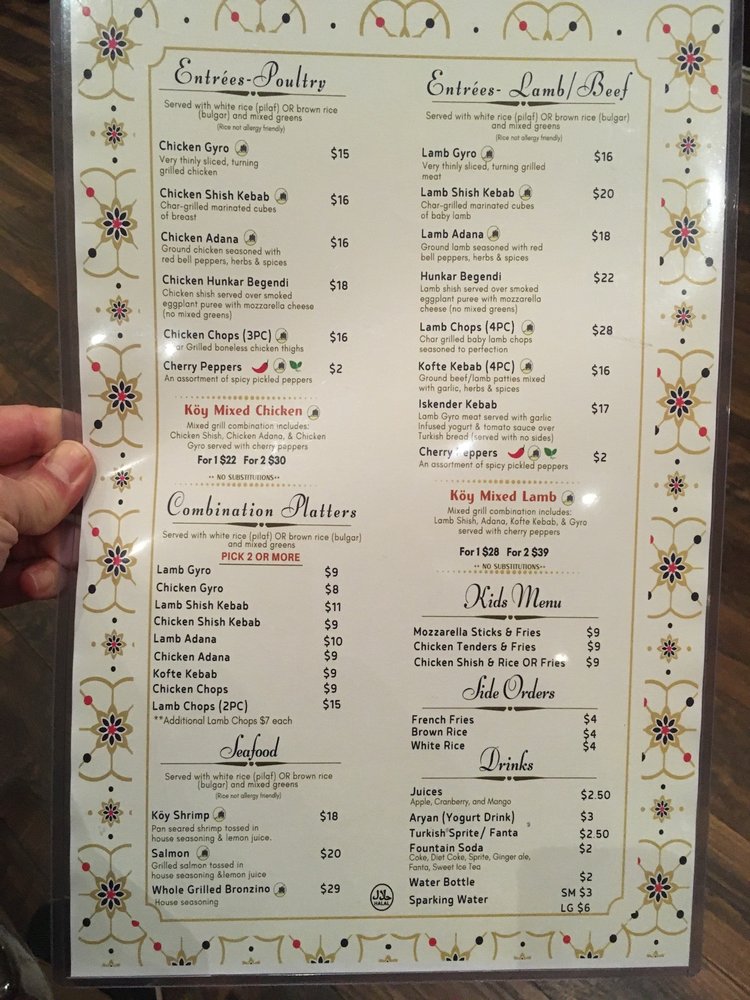 Entrées-Poultry
Served with white rice (pilaf) OR brown rice
(bulgar) and mixed greens
(Rice not allergy friendly)
Chicken Gyro $15
Very thinly sliced, turning
grilled chicken
Chicken Shish Kebab $16
Char-grilled marinated cubes
of breast
Chicken Adana $16
Ground chicken seasoned with
red bell peppers, herbs & spices
Chicken Hunkar Begendi $18
Chicken shish served over smoked
eggplant puree with mozzarella cheese
(no mixed greens)
Chicken Chops (3PC) $16
Char Grilled boneless chicken thighs
Cherry Peppers $2
An assortment of spicy pickled peppers
Köy Mixed Chicken
Mixed grill combination includes:
Chicken Shish, Chicken Adana, & Chicken
Gyro served with cherry peppers
For 1 $22 For 2 $30
•• NO SUBSTITUTIONS••
Combination Platters
Served with white rice (pilaf) OR brown rice (bulgar)
and mixed greens
PICK 2 OR MORE
Lamb Gyro $9
Chicken Gyro $8
Lamb Shish Kebab $11
Chicken Shish Kebab $9
Lamb Adana $10
Chicken Adana $9
Kofte Kebab $9
Chicken Chops $9
Lamb Chops (2PC) $15
**Additional Lamb Chops $7 each
Seafood
Served with white rice (pilaf) OR brown rice
(bulgar) and mixed greens
(Rice not allergy friendly)
Köy Shrimp $18
Pan seared shrimp tossed in
house seasoning & lemon juice.
Salmon $20
Grilled salmon tossed in
house seasoning &lemon juice
Whole Grilled Bronzino $29
House seasoning
Entrées- Lamb/Beef
Served with white rice (pilaf) OR brown rice (bulgar)
and mixed greens
(Rice not allergy friendly)
Lamb Gyro $16
Very thinly sliced, turning grilled
meat
Lamb Shish Kebab $20
Char-grilled marinated cubes
of baby lamb
Lamb Adana $18
Ground lamb seasoned with red
bell peppers, herbs & spices
Hunkar Begendi $22
Lamb shish served over smoked
eggplant puree with mozzarella
cheese (no mixed greens)
Lamb Chops (4PC) $28
Char grilled baby lamb chops
seasoned to perfection
Kofte Kebab (4PC) $16
Ground beef/lamb patties mixed
with garlic, herbs & spices
Iskender Kebab $17
Lamb Gyro meat served with garlic
Infused yogurt & tomato sauce over
Turkish bread (served with no sides)
Cherry Peppers $2
An assortment of spicy pickled peppers
Köy Mixed Lamb
Mixed grill combination includes:
Lamb Shish, Adana, Kofte Kebab, & Gyro
served with cherry peppers
For 1 $28 For 2 $39
•• NO SUBSTITUTIONS••
Kids Menu
Mozzarella Sticks & Fries $9
Chicken Tenders & Fries $9
Chicken Shish & Rice OR Fries $9
Side Orders
French Fries $4
Brown Rice $4
White Rice $4
Drinks
Juices $2.50
Apple, Cranberry, and Mango
Aryan (Yogurt Drink) $3
Turkish Sprite/ Fanta $2.50
Fountain Soda $2
Coke, Diet Coke, Sprite, Ginger ale,
Fanta, Sweet Ice Tea
Water Bottle $2
Sparking Water SM $3
LG $6
حلال
HALAL